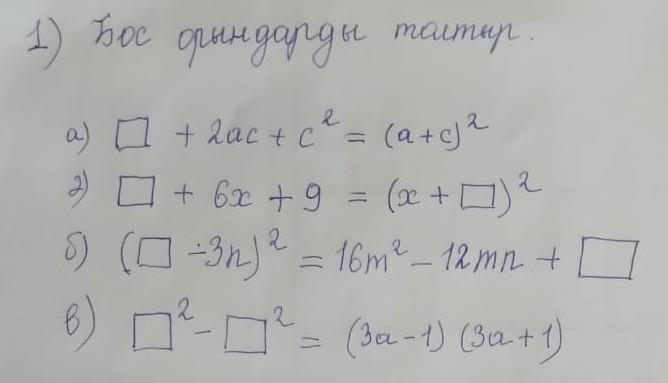 1) Бос орындарды толтыр.
а) □ + 2ac + c² = (a+c)²
ә) □ + 6x + 9 = (x + □)²
б) (□ ÷3n)² = 16m² - 12mn + □
в) □² - □² = (3a-1) (3a+1)